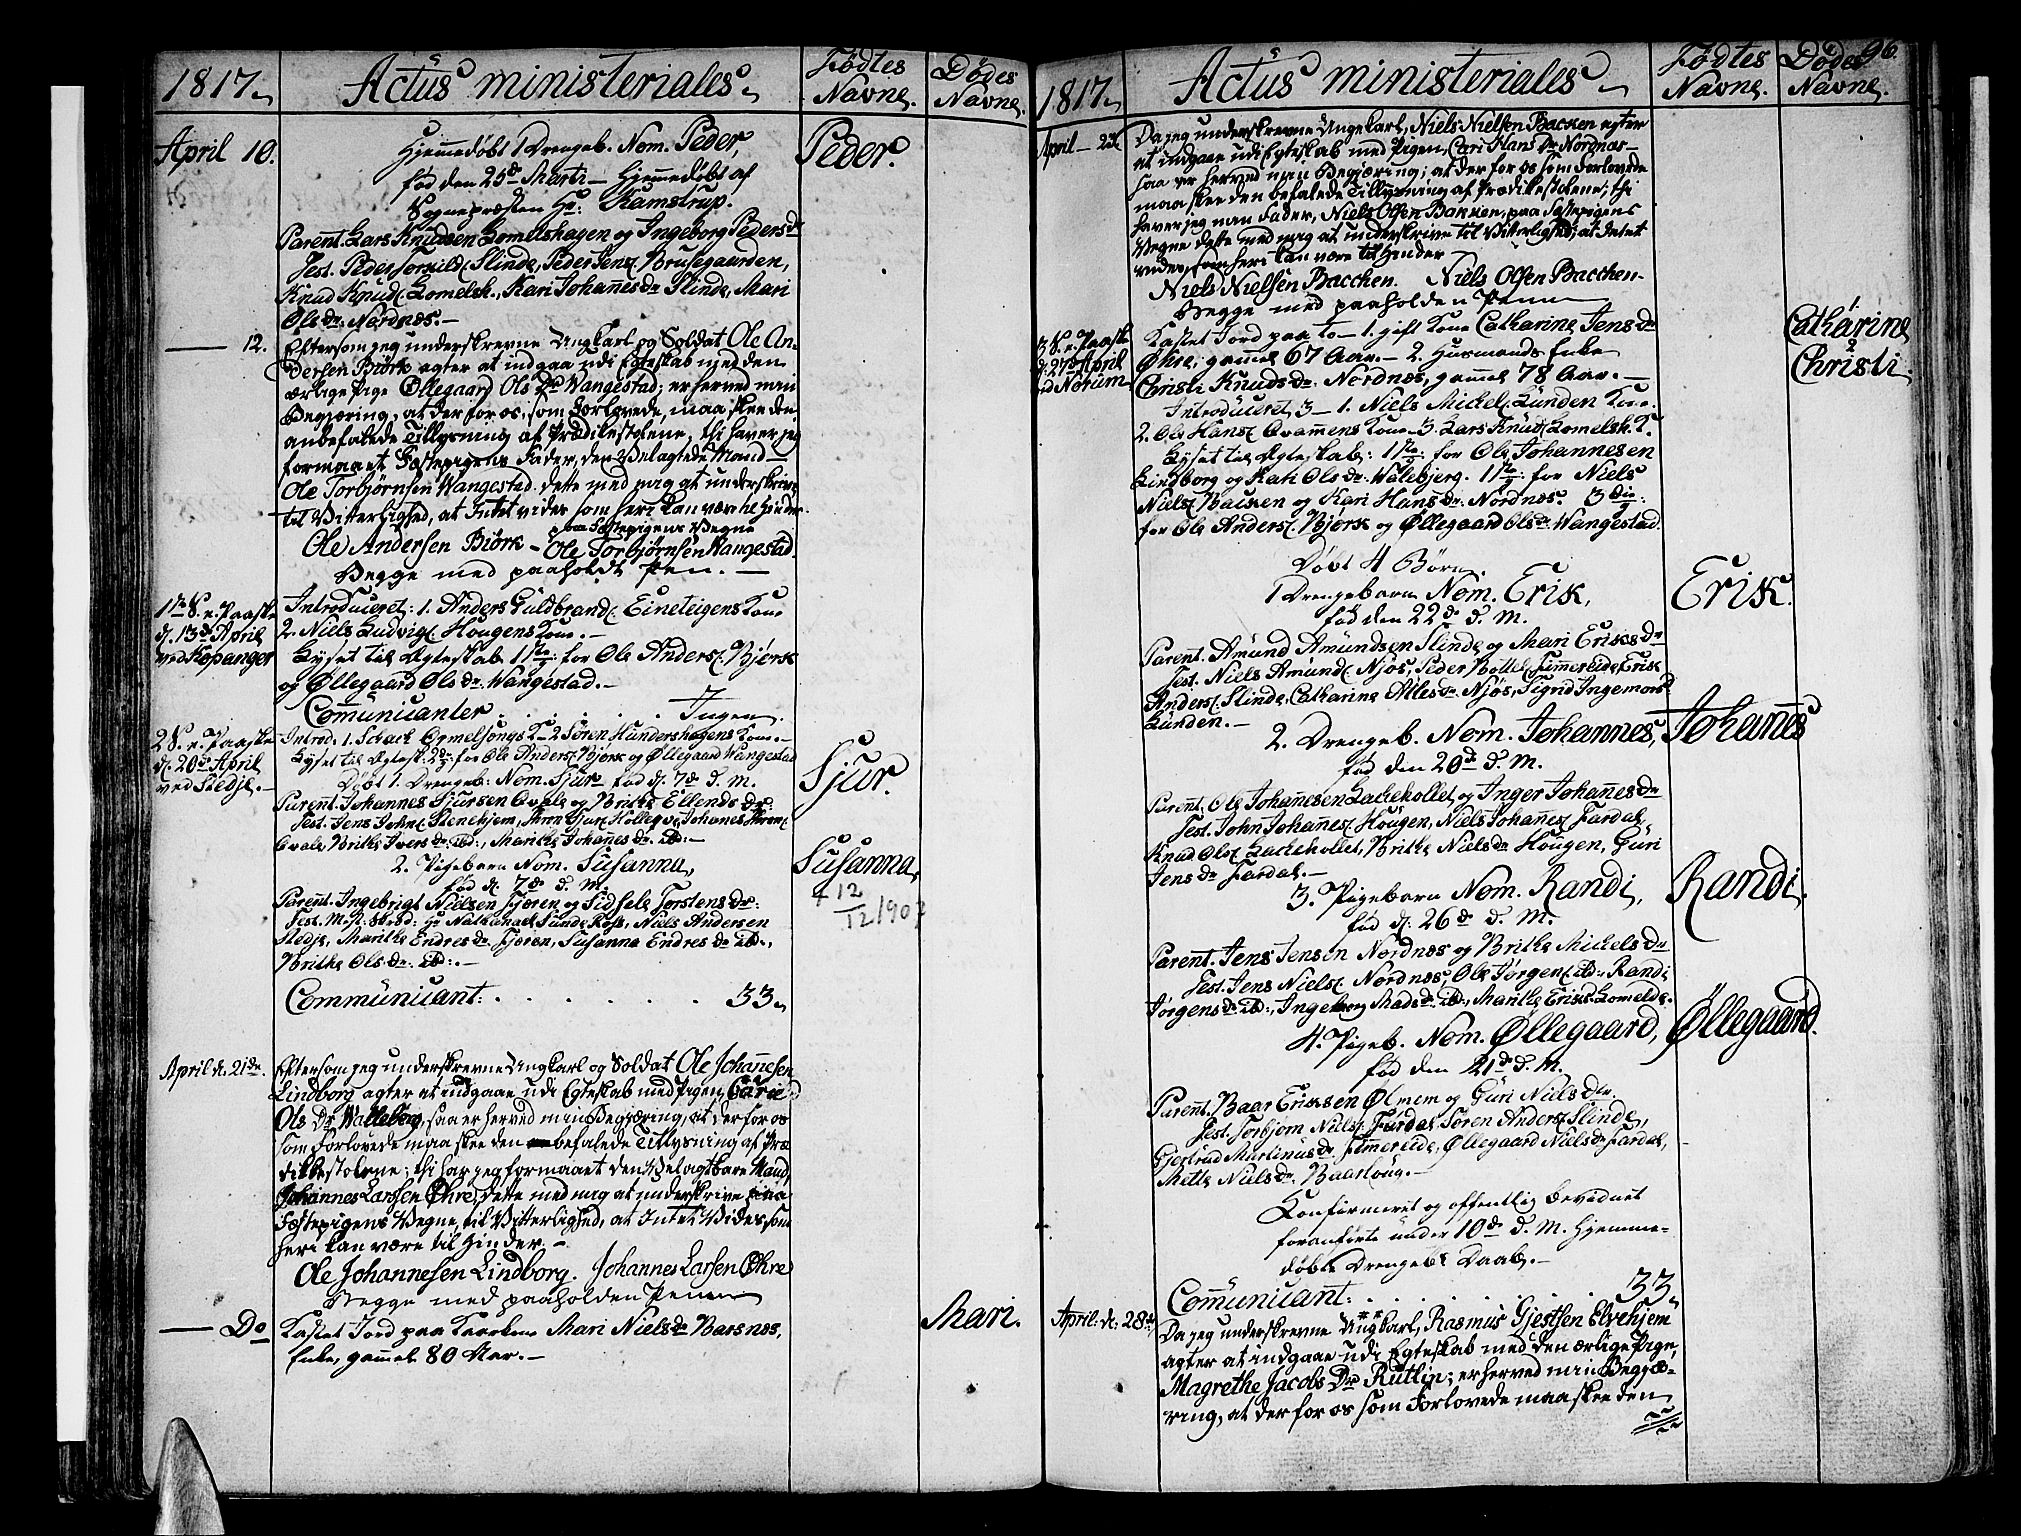 1817.
Actus ministeriales.
Fødtes Navne.
Dødes Navne.
April 10.
Hjemmedøbt 1 Drengeb. Nom. Peder,
Peder.
fød den 25de Marti – Hjemmedøbt af
Sognepræsten Hr: Kamstrup.
Parent. Lars Knudsen Lomelshagen og Ingeborg Pedersdr
Test. Peder Torkilds. Slinde, Peder Jens. Brusegaarden,
Knud Knuds. Lomelsh., Kari Johanesdr Slinde, Mari
Olsdr. Nordnæs.–
– 12.
Eftersom jeg underskrevne Ungkarl og Soldat Ole An-
dersen Biørk agter at indgaae udi Egteskab med den
ærlige Pige Øllegaard Ols Dr Wangestad; er herved min
Begjæring, at der for os, som Forlovede, maa skee den
anbefalede Tillysning af Prædikestolene, thi haver jeg
formaaet Fæstepigens Fader, den Velagtede Mand
Ole Torbjørnsen Wangestad dette med mig at underskrive
til Vitterlighed, at Intet vides som heri kan være til Hinder.
paa Fæstepigens Vegne
Ole Andersen Biörk – Ole Torbjørnsen Wangestad.
Begge med paaholdt Pen.–
1ste S. e. Paaske
d. 13de April
ved Kopanger
Introduceret: 1. Anders Guldbrands. Eineteigens Kone
2. Niels Ludvigs. Hougens Kone.–
Lyset til Ægteskab 1ste: for Ole Anders. Bjørk
og Øllegaard Olsdr. Wangestad.–
Communicanter . . . . . Ingen.
2 S. e. Paaske
d. 20de April
ved Stedje.–
Introd. 1. Schack Ormelsongs K– 2 Søren Hundershagens Kone.–
Lyset til Ægtesk: 2de: for Ole Anders. Bjørk og Øllegaard Wangestad
Døbt 1. Drengeb: Nom. Sjur fød d. 7de d. M.
Sjur.
Parent. Johannes Sjursen Qvale og Brithe Ellendsdr:
Test. Jens Johns. Stenehjem, Sjur Hollegv,
Qvale, Brithe Iversdr ibd:, Marithe Johanesdr. ibd:–
2. Pigebarn Nom. Susanna,
Susanna,
fød d. 7de d. M.
12/12 1907
Parent. Ingebrigt Nielsen Fjæren og Sidsele Torstensdr:
Test. Hr Nathanael Sunde Niels Andersen
Stedje, Marithe Endresdr Fjæren, Susanna Endresdr ibd:,
Brithe Olsdr. ibd:.–
Communicant: . . . . . . . 33.
April d. 21de.
Eftersom jeg underskrevne Ungkarl og Soldat Ole Johannesen
Lindborg agter at indgaae udi Egteskab med Pigen Carie
Ols Dr Walleborg, saa er herved min Begjæring, at der for os
som Forlovede maa skee den befalede Tillysning af Præ
dikestolene; thi har jeg formaaet den Velagtbare Mand,
Johannes Larssen Øhre, dette med mig at underskrive paa
Fæstepigens Vegne, til Vitterlighed, at Intet Vides, som
heri kan være til Hinder.–
Ole Johannesen Lindborg. Johannes Larsen Øhre
Begge med paaholden Penn
– Do
Kastet Jord paa Mari Nielsdr Barsnæs,
Mari.
Enke, gammel 80 Aar.–
96.
1817.
Actus ministeriales
Fødtes Navne.
Dødes Navne.
April –
Da jeg underskrevne Ungkarl, Niels Nielsen Backen agter
at indgaae udi Egteskab med Pigen, Cari Hans Dr Nordnæs–
saa er herved min Begjæring; at der for os som Forlovede
maa skee den befalede Tillysning af Prædikestolene; thi
haver jeg min Fader, Niels Olsen Bakken, paa Fæstepigens
Vegne dette med mig at underskrive til Vitterlighed; at Intet
vides, som heri kan være til Hinder
Niels Nielsen Bacchen. Niels Olsen Bacchen–
Begge med paaholden Penn
3 S. e. Paaske
d. 27de April
ved Norum
Kastet Jord paa to – 1. gift Kone Catharine Jensdr
Catharine
Øhre, gammel 67 Aar.– 2. Husmands Enke
2
Christi Knudsdr. Nordnæs, gammel 78 Aar.–
Christi.
Introduceret 3– 1. Niels Mickel. Lunden Kone.
2. Ole Hans. Qvammens Kone– 3. Lars Knuds. Lomelsh. K.
Lyset til Ægteskab: 1ste: for Ole Johannesen
Lindborg og Kari Olsdr. Walebjerg. 1ste: for Niels
Niels. Backen og Kari Hansdr. Nordnæs. 3die:
for Ole Anders. Bjørk og Øllegaard Olsdr. Wangestad.
Døbt 4 Børn.
1 Drengebarn Nom. Erik,
Erik.
fød den 22de d. M.
Parent. Amund Amundsen Slinde og Mari Eriksdr
Test. Niels Amunds. Njøs, Peder Bottels. Fimereide, Erik
Anders. Slinde, Catharine Atlesdr. Njøs, Signd Ingemors
Lunden.–
2. Drengeb. Nom. Johannes,
Johanes
fød den 20de d. M.
Parent. Ole Johanesen Lackehollet og Inger Johanesdr
Test. John Johanes. Hougen, Niels Johanes. Fardal,
Knud Ols. Lackehollet, Brithe Nielsdr Hougen, Guri
Jensdr Fardal.–
3. Pigebarn Nom. Randi,
Randi.
fød d. 26de d. M.
Parent. Jens Jensen Nordnæs og Brithe Mickelsdr
Test. Jens Niels. Nordnæs, Ole Jørgens. ibd: Randi
Jørgensdr ibd:, Ingeborg Madsdr ibd:, Marithe Eriks. Lomelde.
4. Pigeb. Nom. Øllegaard,
Øllegaard.
fød den 21de d. M.
Parent. Baar Eriksen Ølmem og Guri Nielsdr.
Test. Torbjørn Niels. Fardal, Søren Anders. Slinde,
Gjertrud Martinusdr. Fimereide, Øllegaard Nielsdr Fardal,
Mette Nielsdr.
Konfirmeret og offentlig bevidnet
foranførte under 10de d. M. Hjemme-
døbte Drengebs Daab.–
Communicant: . . . . . . . 33.
April: d. 28de
Da jeg underskrevne Ungkarl, Rasmus Gjestsen Elvehjem
agter at indgaae udi Egteskab med den ærlige Pige,
Magrethe Jacobs Dr Rutlin; er herved min Begjæ-
ring, at der for os som Forlovede maa skee den